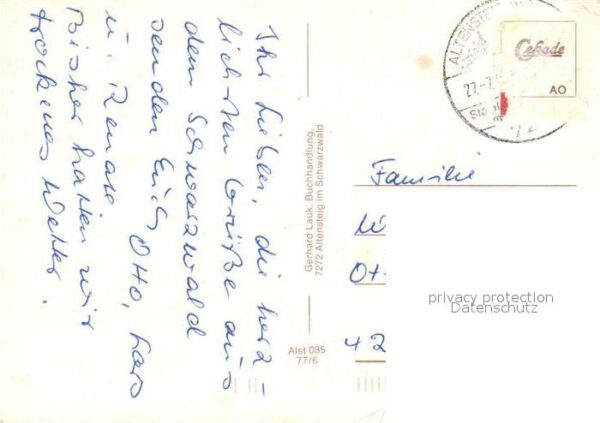 Ihr Lieben, die herz-
lichsten Grüße aus
dem Schwarzwald
senden Euch Otto, Lars
u. Renate.
Bisher hatten wir
trockenes Wetter.
Gerhard Lauk, Buchhandlung,
7272 Altensteig im Schwarzwald
Alst 085
77/6
ALTENSTE
27.-7.
Cekade
AO
Familie
Ot
42
privacy protection
Datenschutz